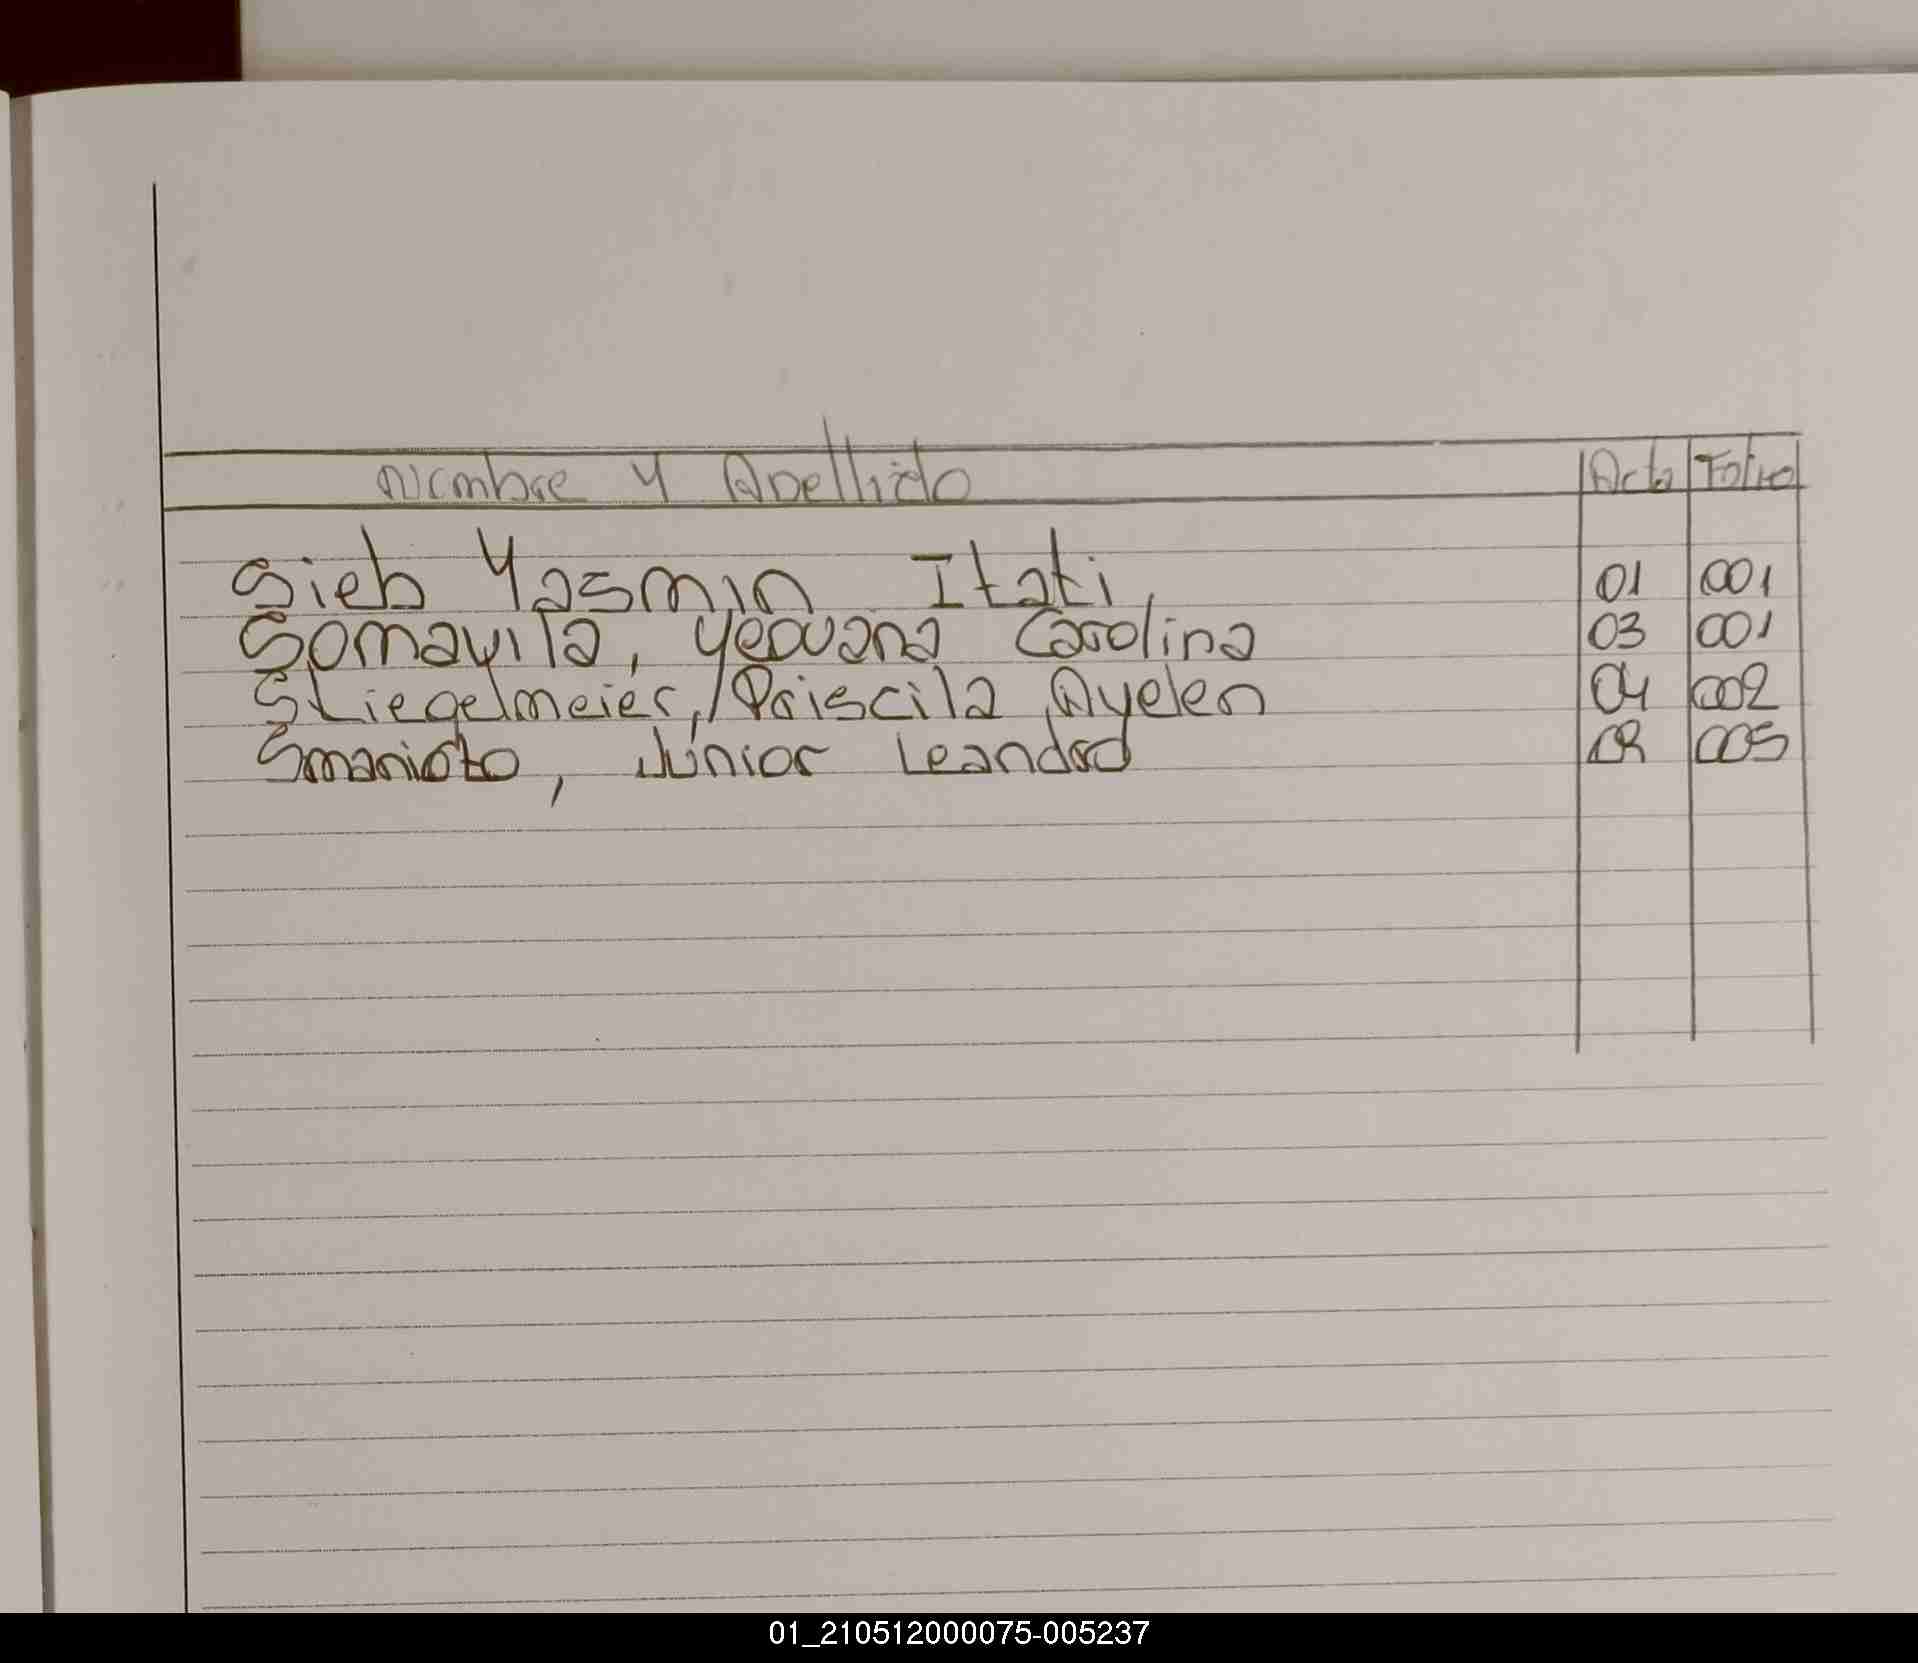 Nombre y Apellido Acta Folio
Sieb Yasmin Itati, 01 001
Somavila, Yeovana Carolina 03 001
Stiegelmeier, Priscila Ayelen 04 002
Smanioto, Júnior Leandro 005
01_210512000075-005237